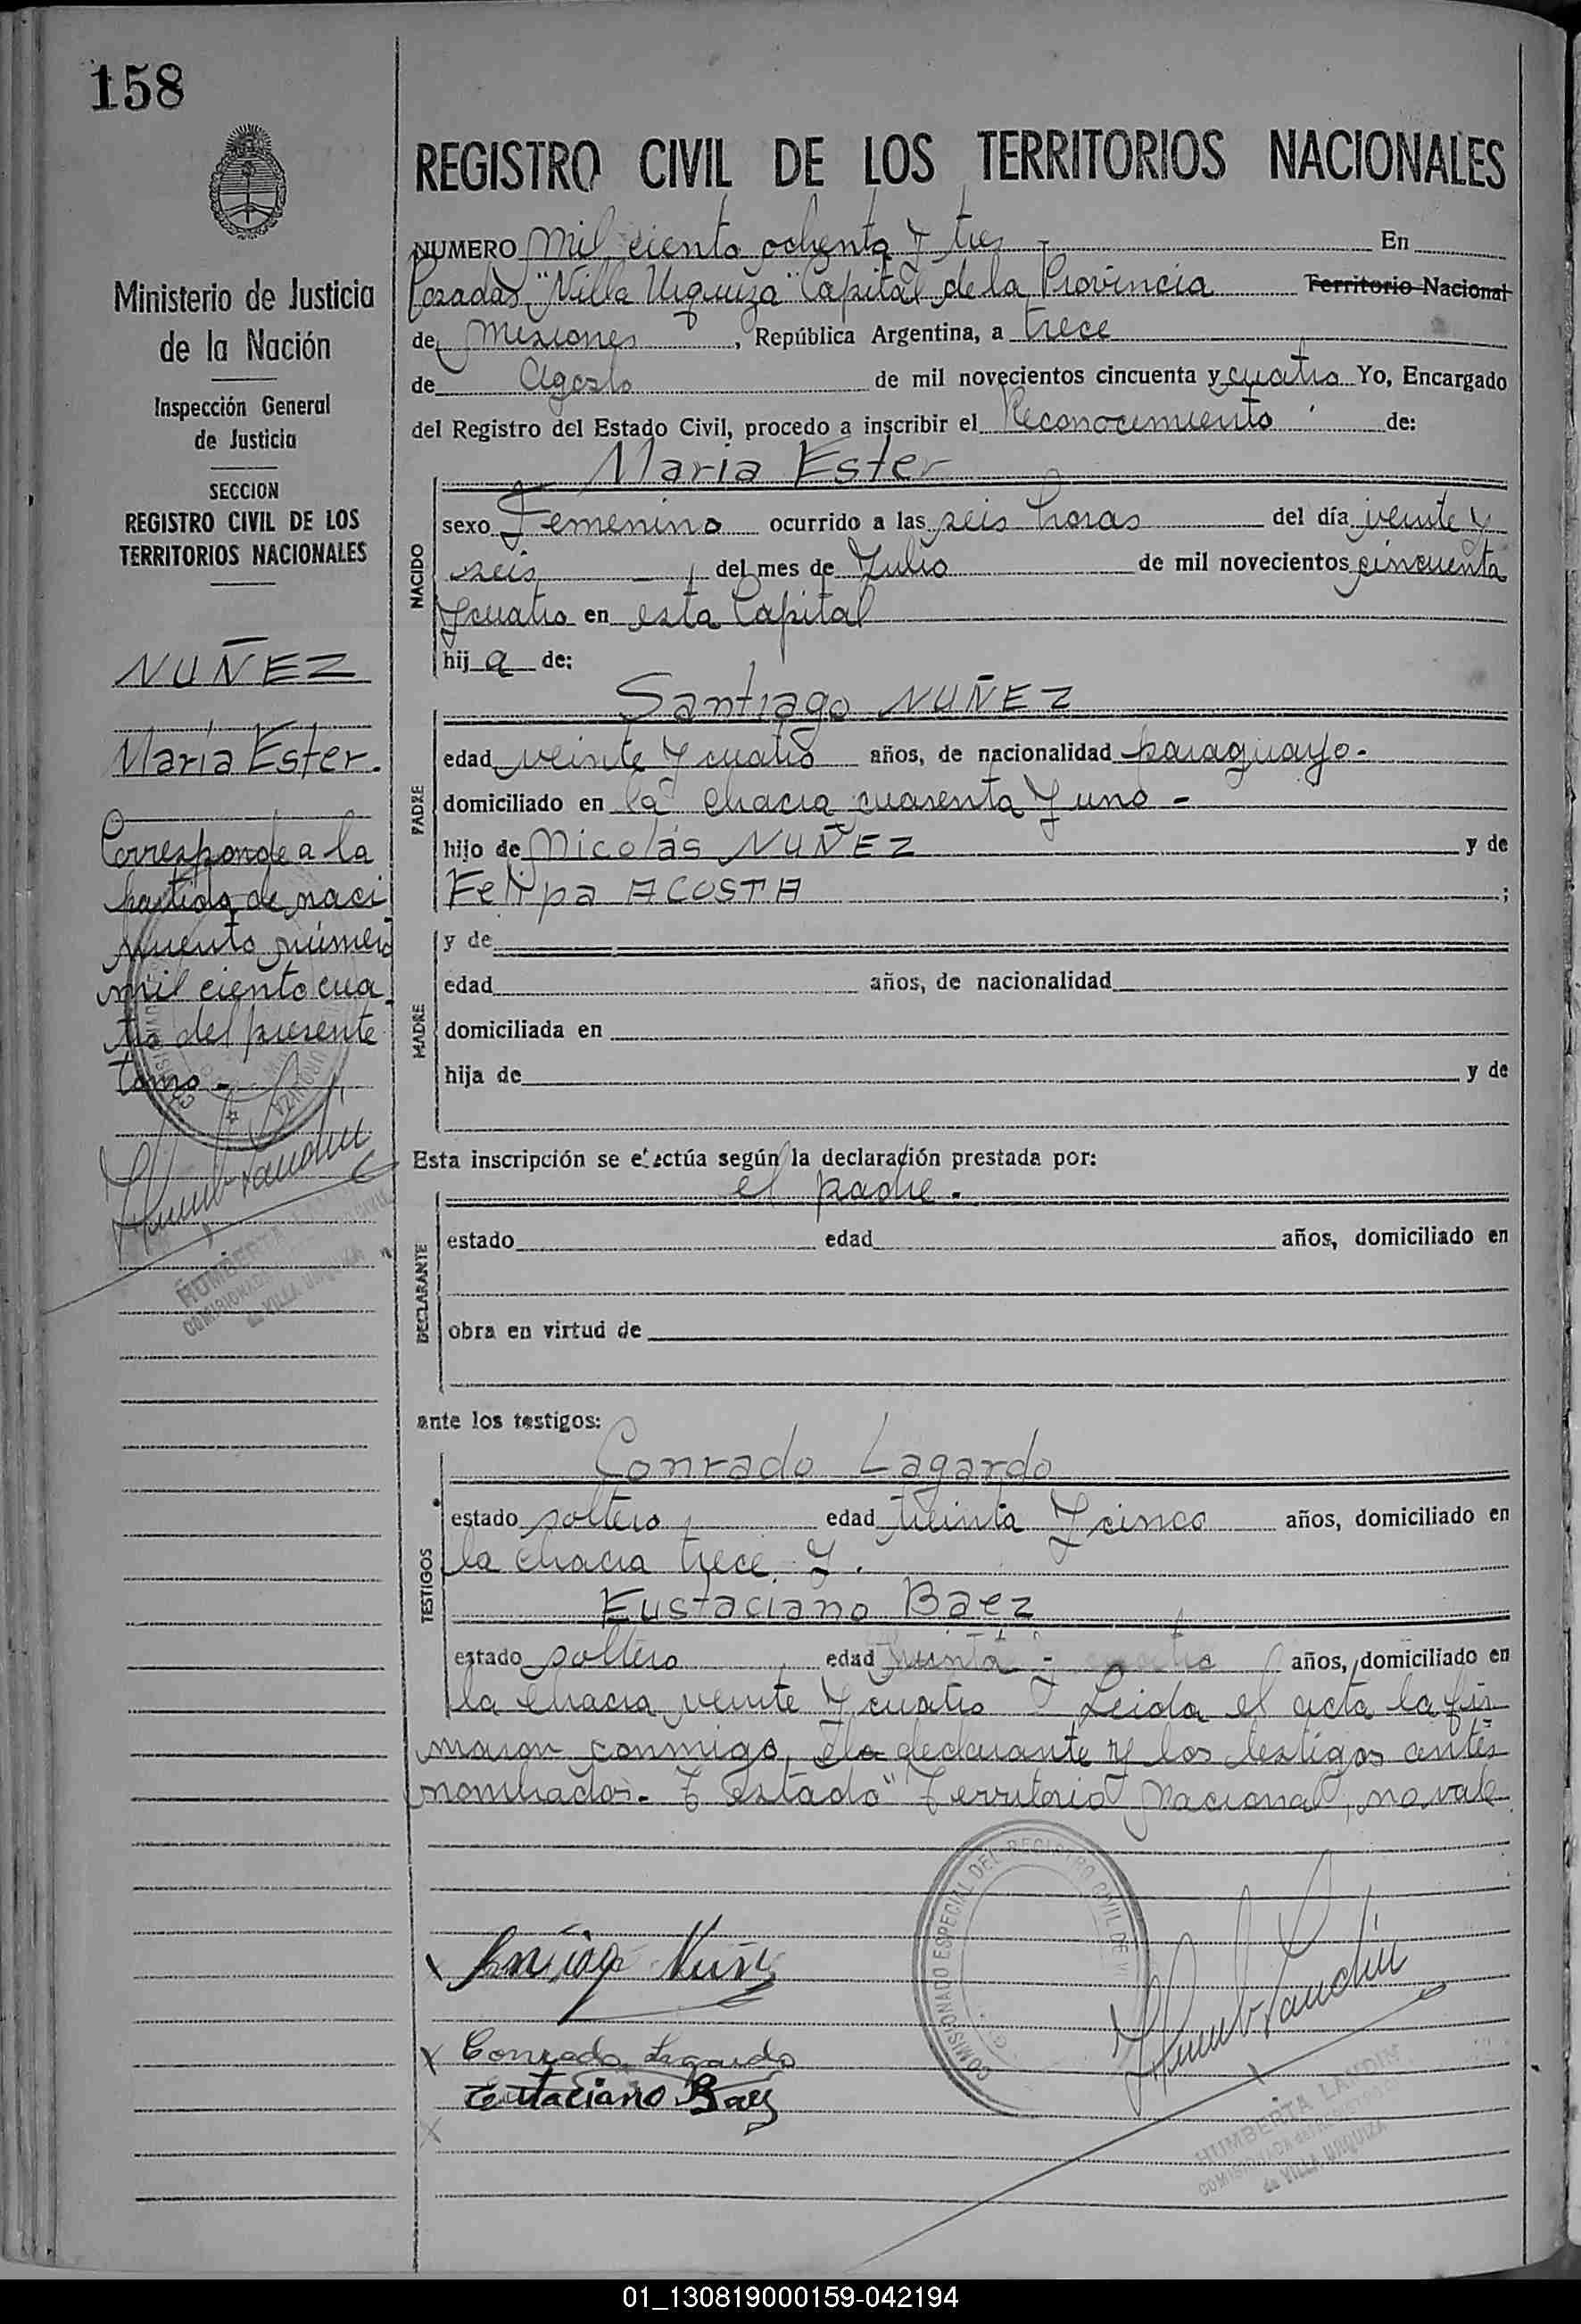 158
REGISTRO CIVIL DE LOS TERRITORIOS NACIONALES
Ministerio de Justicia
de la Nación
Inspección General
de Justicia
SECCION
REGISTRO CIVIL DE LOS
TERRITORIOS NACIONALES
NUÑEZ
María Ester.
Corresponde a la
partida de naci
miento número
mil ciento cua
tro del presente
tomo.-
NUMERO mil ciento ochenta y tres - En
Posadas, "Villa Urquiza" Capital de la Provincia Territorio Nacional
de Misiones, República Argentina, a trece
de Agosto de mil novecientos cincuenta y cuatro Yo, Encargado
del Registro del Estado Civil, procedo a inscribir el Reconocimiento de:
NACIDO
María Ester
sexo Femenino ocurrido a las seis horas del día veinte y
seis del mes de Julio de mil novecientos cincuenta
y cuatro en esta Capital
hij a de:
PADRE
Santiago NUÑEZ
edad veinte y cuatro años, de nacionalidad paraguayo.-
domiciliado en la chacra cuarenta y uno -
hijo de Nicolás NUÑEZ y de
Felipa ACOSTA ;
MADRE
y de
edad años, de nacionalidad
domiciliada en
hija de y de
Esta inscripción se efectúa según la declaración prestada por:
DECLARANTE
el padre.
estado edad años, domiciliado en
obra en virtud de
ante los testigos:
TESTIGOS
Conrado Lagardo
estado soltero edad treinta y cinco años, domiciliado en
la chacra trece y.
Eustaciano Baez
estado soltero edad treinta y cuatro años, domiciliado en
la chacra veinte y cuatro Leida el acta la fir=
maron conmigo, el declarante y los testigos antes
nombrados.- T estado "Territorio Nacional", no vale
Santiago Nuñez
Conrado Lagardo
Eustaciano Baez
COMISIONADO ESPECIAL DEL REGISTRO CIVIL DE
HUMBERTA LANDIN
COMISIONADA del REGISTRO
de VILLA URQUIZA
01_130819000159-042194